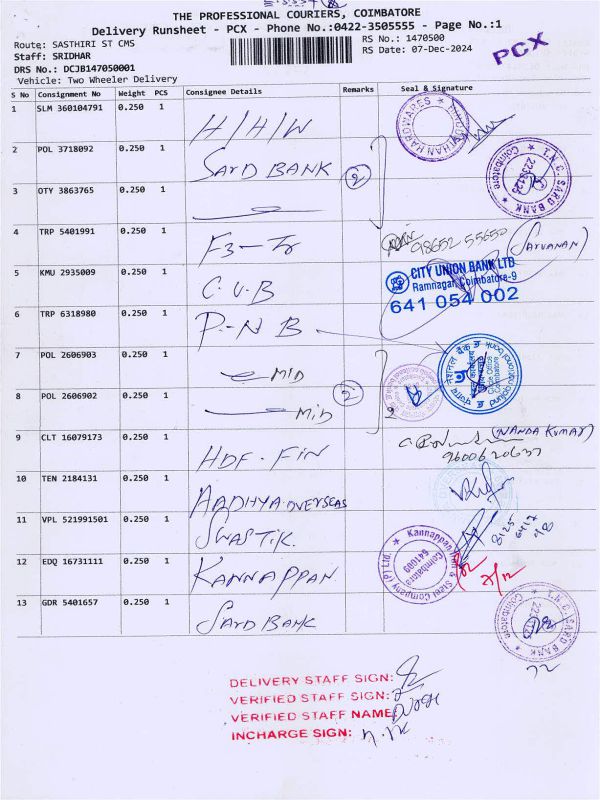 THE PROFESSIONAL COURIERS, COIMBATORE
Delivery Runsheet - PCX - Phone No.:0422-3505555 - Page No.:1
Route: SASTHIRI ST CMS
RS No.: 1470500
Staff: SRIDHAR
RS Date: 07-Dec-2024
PCX
DRS No.: DCJB147050001
Vehicle: Two Wheeler Delivery
S No Consignment No Weight PCS Consignee Details Remarks Seal & Signature
1 SLM 360104791 0.250 1 H/H/W
2 POL 3718092 0.250 1 SARD BANK
T.N.C. SARD BANK
Coimbatore
3 OTY 3863765 0.250 1
4 TRP 5401991 0.250 1 98652 55650
(SARVANAN)
5 KMU 2935009 0.250 1 C.U.B
CITY UNION BANK LTD
Ramnagar, Coimbatore-9
641 054 002
6 TRP 6318980 0.250 1 P-N B
punjab national bank
7 POL 2606903 0.250 1 MID
8 POL 2606902 0.250 1 MID
9 CLT 16079173 0.250 1 HDF-FIN
(NANDA KUMAR)
9600620637
10 TEN 2184131 0.250 1 AADHYA OVERSEAS
11 VPL 521991501 0.250 1 SWASTIK
8125
6417
98
12 EDQ 16731111 0.250 1 KANNAPPAN
Kannappan Iron & Steel Company (P) Ltd.
Coimbatore
641009
7/12
13 GDR 5401657 0.250 1 SARD BANK
T.N.C. SARD BANK
Coimbatore
DELIVERY STAFF SIGN:
VERIFIED STAFF SIGN:
VERIFIED STAFF NAME
INCHARGE SIGN: